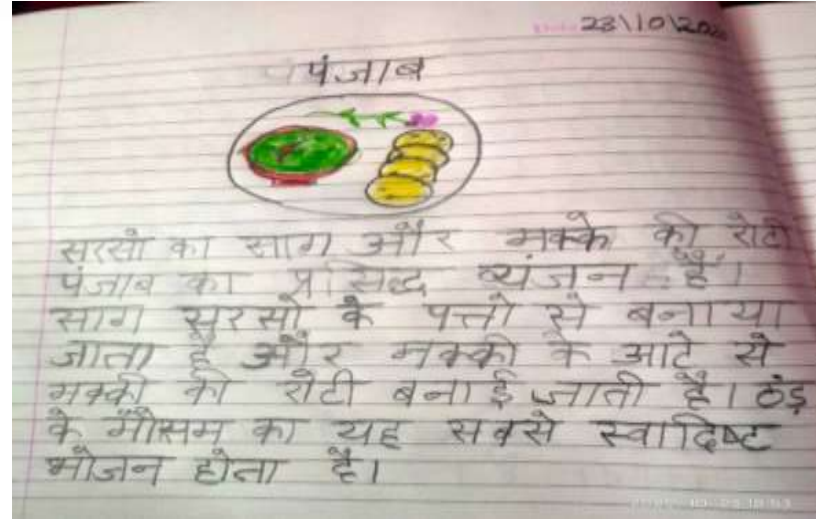 23\10\202
पंजाब
सरसो का साग और मक्के की रोटी
पंजाब का प्रसिद्ध व्यंजन हैं।
साग सुरसो के पत्तो से बनाया
जाता है और मक्की के आटे से
मक्की की रोटी बनाई जाती है। ठंड़
के मौसम का यह सबसे स्वादिष्ट
भोजन होता है।